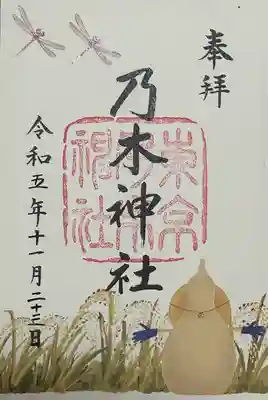 奉拝
乃木神社
東京
神社
令和五年十一月二十三日